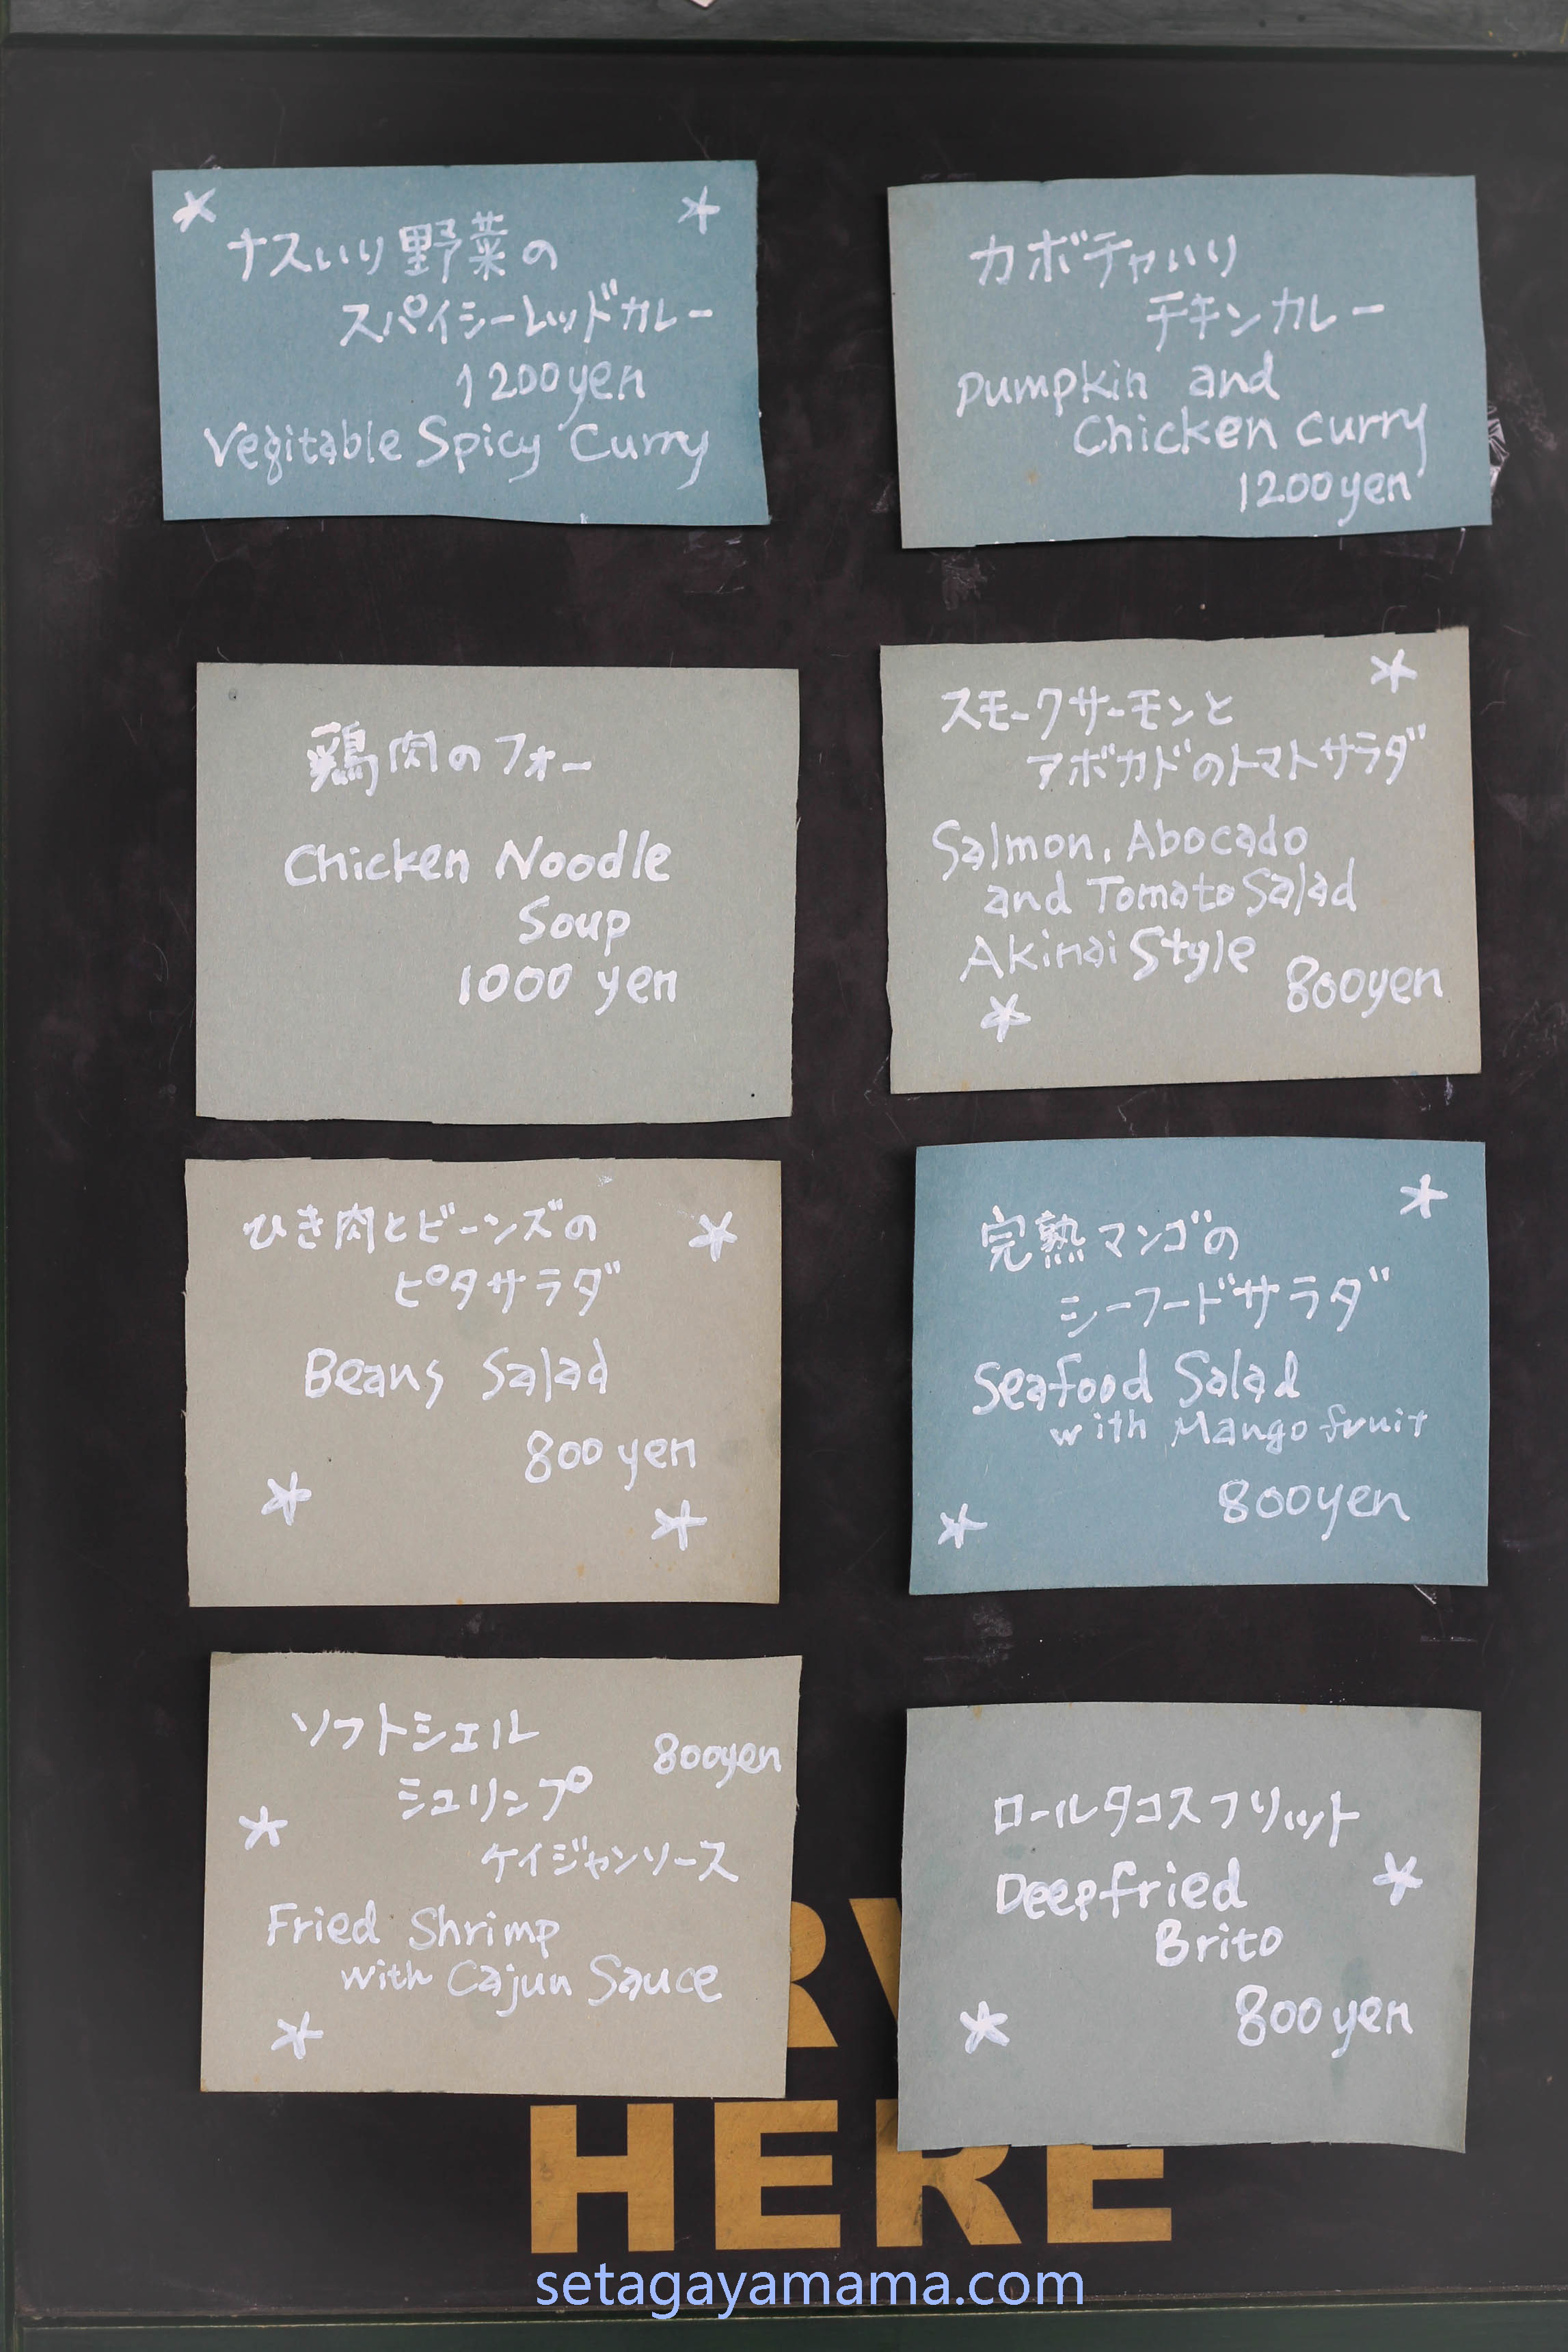 ナスいり野菜の
スパイシーレッドカレー
1200yen
Vegitable Spicy Curry
カボチャいり
チキンカレー
pumpkin and
Chicken curry
1200yen
鶏肉のフォー
Chicken Noodle
Soup
1000 yen
スモークサーモンと
アボカドのトマトサラダ
Salmon, Abocado
and Tomato Salad
Akinai Style
800yen
ひき肉とビーンズの
ピタサラダ
Beans Salad
800 yen
完熟マンゴの
シーフードサラダ
Seafood Salad
with Mango fruit
800yen
ソフトシェル
800yen
シュリンプ
ケイジャンソース
Fried Shrimp
with Cajun Sauce
ロールタコスフリット
Deepfried
Brito
800 yen
HERE
setagayamama.com